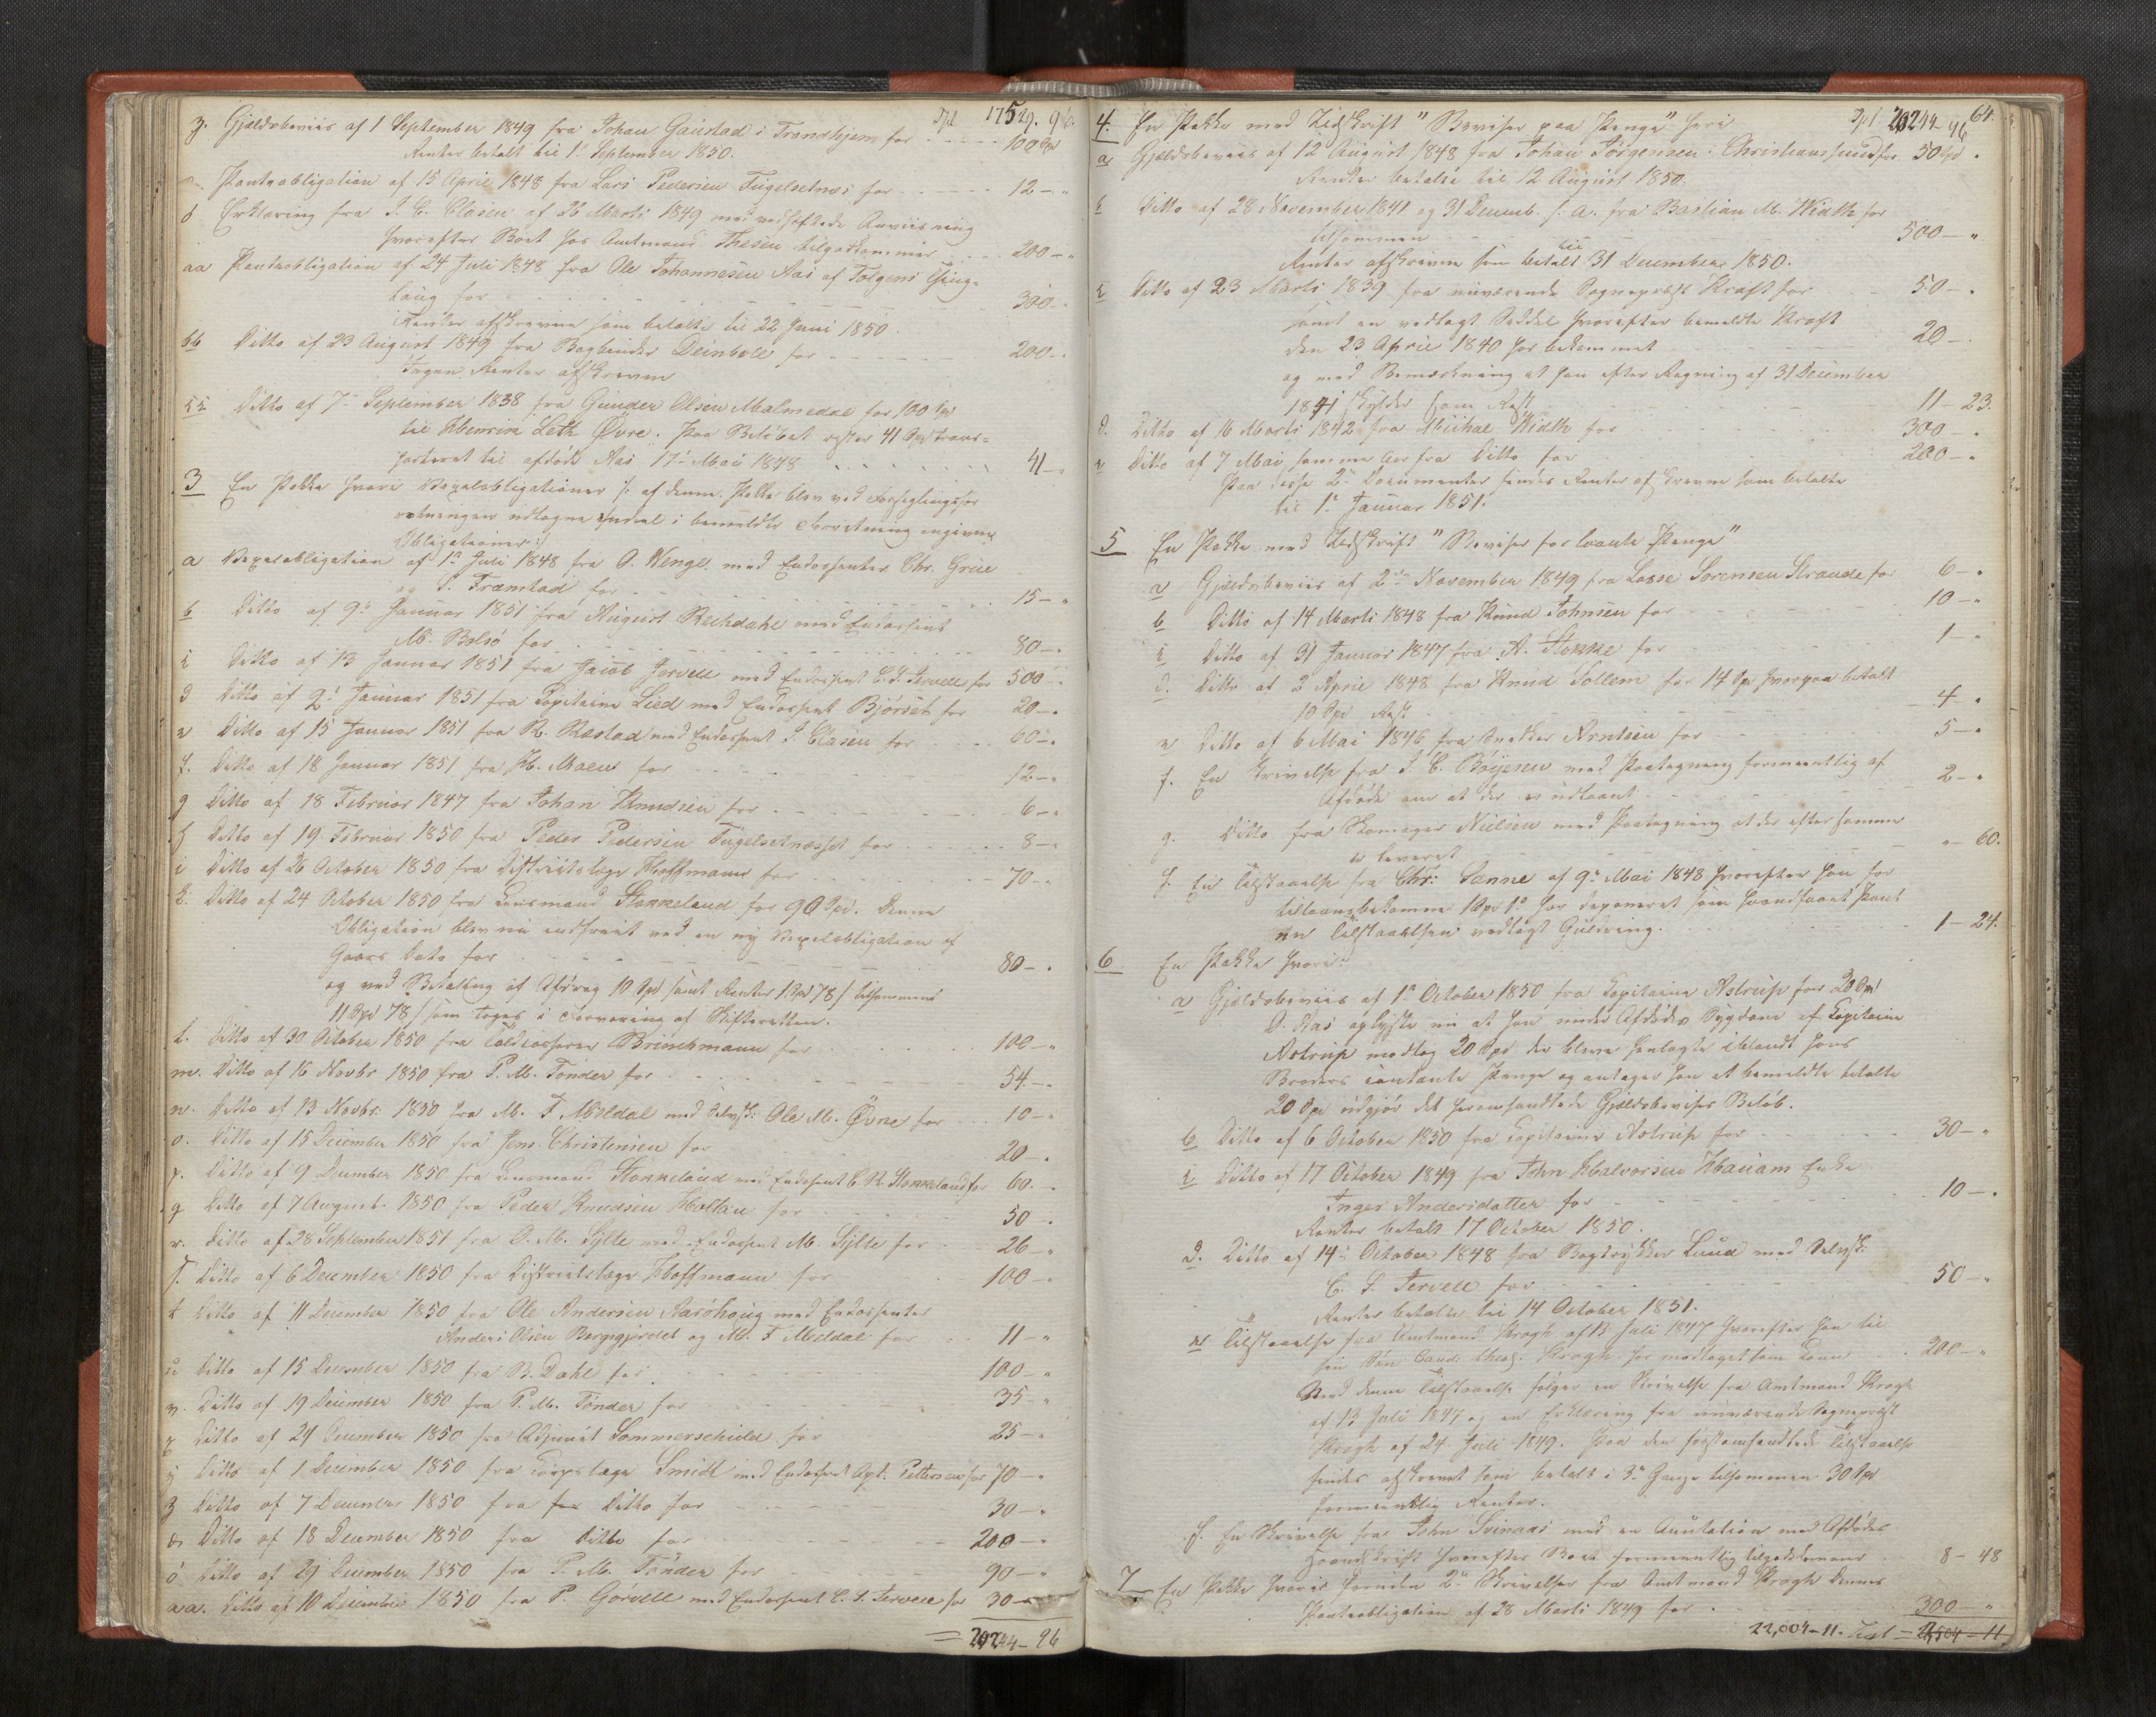 Spd 17529. 96.
z. Gjældsbeviis af 1 September 1849 fra Johan Gaustad i Trondhjem for 100 Spd
Renter betalt til 1 September 1850.
Panteobligation af 15 April 1848 fra Lars Pedersen Fugelsetnæs for 12 – "
ö Erklæring fra J. C. Clasen af 26 Marts 1849 med vedhæftede Anviisning
hvorefter Boet hos Amtmand Thesen tilgodekommer 200 – "
aa Panteobligation af 24 Juli 1848 fra Ole Johannesen Aas af Thing-
laug for 300 – "
Renter afskrevne som betalte til 22 Juni 1850.
bb Ditto af 23 August 1849 fra Bogbinder Deinboll for 200 – "
Ingen Renter afskrevne
cc Ditto af 7de September 1838 fra Gunder Olsen Malmedal for 100 Spd
til Henrik Leth Øvre. Paa Beløbet rester 41 Spd trans-
porteret til afdøde Aas 17de Mai 1848 41 – "
3 En Pakke hvori Vexelobligationer /: af denne Pakke blev ved Forseglingsfor
retningen udtagne endeel i bemeldte Forretning angivne
Obligationer :/
a Vexelobligation af 1ste Juli 1848 fra O. Wenge med Endossenter Chr. Grüe
og S. Framstad for 15 – "
b Ditto af 9de Januar 1851 fra August Rechdahl med Endossent
M. Bolsø for 80 – "
c Ditto af 13 Januar 1851 fra Jacob Jervell med Endossent C. S. Jervell for 500 – "
d Ditto af 2de Januar 1851 fra Capitaine Lied med Endossent Bjørset for 20 – "
e Ditto af 15 Januar 1851 fra R. Røstad med Endossent J. Clasen for 60 – "
f. Ditto af 18 Januar 1851 fra H. Moew for 12 – "
g Ditto af 18 Februar 1847 fra Johan Knudsen for 6 – "
h Ditto af 19 Februar 1850 fra Peder Pedersen Fugelsetnæsset for 8 – "
i Ditto af 26 October 1850 fra Districtslæge Hoffmann for 70 – "
k. Ditto af 24 October 1850 fra Lensmand Stokkeland for 90 Spd. Denne
Obligation blev nu indfriet ved en ny Vexelobligation af
Gaars Dato for 80 – "
og ved Betaling af Afdrag 10 Spd samt Renter 1 Spd 78 / tilsammens
11 Spd 78 / som toges i Forvaring af Skifteretten.
l. Ditto af 30 October 1850 fra Toldcasserer Brinchmann for 100 – "
m. Ditto af 16 Novbr 1850 fra P. M. Tønder for 54 – "
n. Ditto af 13 Novbr. 1850 fra M. F. Moldal med Selvsk: Ole M. Øvre for 10 – "
o. Ditto af 15 December 1850 fra Jens Christensen for 20 – "
p. Ditto af 9 December 1850 fra Lensmand Stokkeland med Endossent C R Stokkeland for 60. – "
q Ditto af 7 August 1850 fra Peder Knudsen Holtan for 50 – "
r. Ditto af 28 September 1851 fra O. M. Sylte med Endossent M. Sylte for 26 – "
s. Ditto af 6 December 1850 fra Districtslæge Hoffmann for 100 – "
t Ditto af 11 December 1850 fra Ole Andersen Aarøhoug med Endossenter
Anders Olsen Bergsgjerdet og M. F Moldal for 11 – "
u Ditto af 15 December 1850 fra B. Dahl for 100 – "
v. Ditto af 19 December 1850 fra P. M. Tønder for 35 – "
x Ditto af 24 December 1850 fra Adjunct Sommerschield for 25 – "
y Ditto af 1 December 1850 fra Corpslæge Smidt med Endossent Apt. Pettersen for 70 – "
z Ditto af 7 December 1850 fra Ditto for 30 – "
æ Ditto af 18 December 1850 fra Ditto for 200 – "
ö Ditto af 29 December 1850 fra P. M. Tønder for 90 – "
aa. Ditto af 10 December 1850 fra P. Gørvell med Endossent C. S. Jervell for 30 – "
= 20244 – 96
64.
4. En Pakke med Udskrift "Beviser paa Penge" heri Spd 20244 – 96
a Gjældsbeviis af 12 August 1848 fra Johan Jørgensen i Christianssund for 50 Spd "
Renter betalte til 12 August 1850.
b Ditto af 28 November 1841 og 31 Decemb. s. A. fra Bastian M. Width for
tilsammen 500 – "
Renter afskrevne som betalt til 31 December 1850.
c Ditto af 23 Marts 1839 fra nuværende Sognepræst Kraft for 50 – "
samt en vedlagt Seddel hvorefter bemeldte Kraft
den 23 April 1840 har bekommet 20 – "
og med Bemærkning at han efter Regning af 31 December
1841 skylder som Rest 11 – 23.
d. Ditto af 16 Marts 1842 fra Michael Width for 300 – "
e Ditto af 7 Mai samme Aar fra Ditto for 200 – "
Paa disse 2de Documenter findes Renter afskrevne som betalte
til 1ste Januar 1851.
5 En Pakke med Udskrift "Beviser for laante Penge"
a Gjældsbeviis af 2den November 1849 fra Lasse Sørensen Strande for 6 – "
b Ditto af 14 Marts 1848 fra Knud Johnsen for 10 – "
c Ditto af 31 Januar 1847 fra A. Stokke for 1 – "
d. Ditto af 2 April 1848 fra Knud Sollem for 14 Spd hvorpaa betalt
10 Spd Rest 4 – "
e Ditto af 6 Mai 1846 fra Snekker Arntsen for 5 – "
f. En Skrivelse fra J. C. Bøyesen med Paategning formeentlig af
Afdøde om at der er udlaant 2 – "
g. Ditto fra Skomager Nielsen med Paategning at der efter samme
er leveret " – 60.
h. En Tilstaaelse fra Chr: Sanne af 9de Mai 1848 hvorefter han for
tillaansbekomne 1 Spd 1 har deponeret som haandfaaet Pant
en Tilstaaelsen vedlagt Guldring. 1 – 24.
6 En Pakke hvori:
a Gjældsbeviis af 1ste October 1850 fra Capitaine Astrup for 20 Spd
O. Aas oplyste nu at han under Afdødes Sygdom af Capitaine
Astrup modtog 20 Spd der bleve henlagte iblandt hans
Broders contante Penge og antager han at bemeldte betalte
20 Spd udgjør det heromhandlede Gjældsbevises Beløb.
b Ditto af 6 October 1850 fra Capitaine Astrup for 30 – "
c Ditto af 17 October 1849 fra John Halvorsen Hauam Enke
Inger Andersdatter for 10 – "
Renter betalt 17 October 1850.
d. Ditto af 14de October 1848 fra Bogtrykker Luud med Selvsk:
C. S. Jervell for 50 – "
Renter betalte til 14 October 1851.
e Tilstaaelse fra Amtmand Krogh af 13 Juli 1847 hvorefter han til
sin Søn Cand: theol. Krogh har modtaget som Laan 200 – "
Med denne Tilstaaelse følger en Skrivelse fra Amtmand Krogh
af 13 Juli 1847 og en Erklæring fra nuværende Sognepræst
Krogh af 24 Juli 1849. Paa den førstomhandlede Tilstaaelse
findes afskrevet som betalt i 3de Gange tilsammen 30 Spd
formeentlig Renter.
f. En Skrivelse fra John Svinaas med en Annotation med Afdødes
Haandskrift hvorefter Boet formeentlig tilgodekommer 8 – 48
7 En Pakke hvori foruden 2de Skrivelser fra Amtmand Krogh dennes
Panteobligation af 28 Marts 1849 for 300 – "
22,004 – 11. = 21,504 – 11